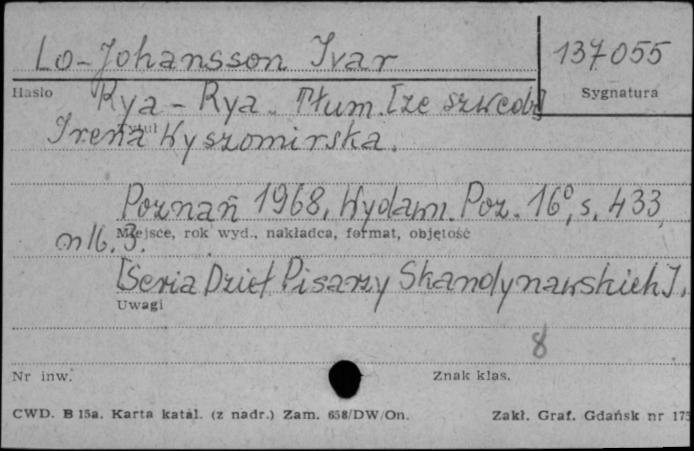 Lo-Johansson Ivar
137055
Hasło
Sygnatura
Rya - Rya. Tłum. [ze szwedz]
Tytuł
Irena Wyszomirska.
Poznań 1968, Wydawn. Poz. 16°, s. 433,
Miejsce, rok wyd., nakładca, format, objętość
nlb. 3.
[Seria Dzieł Pisarzy Skandynawskich].
Uwagi
8
Nr inw.
Znak klas.
CWD. B 15a. Karta katal. (z nadr.) Zam. 658/DW/On.
Zakł. Graf. Gdańsk nr 175